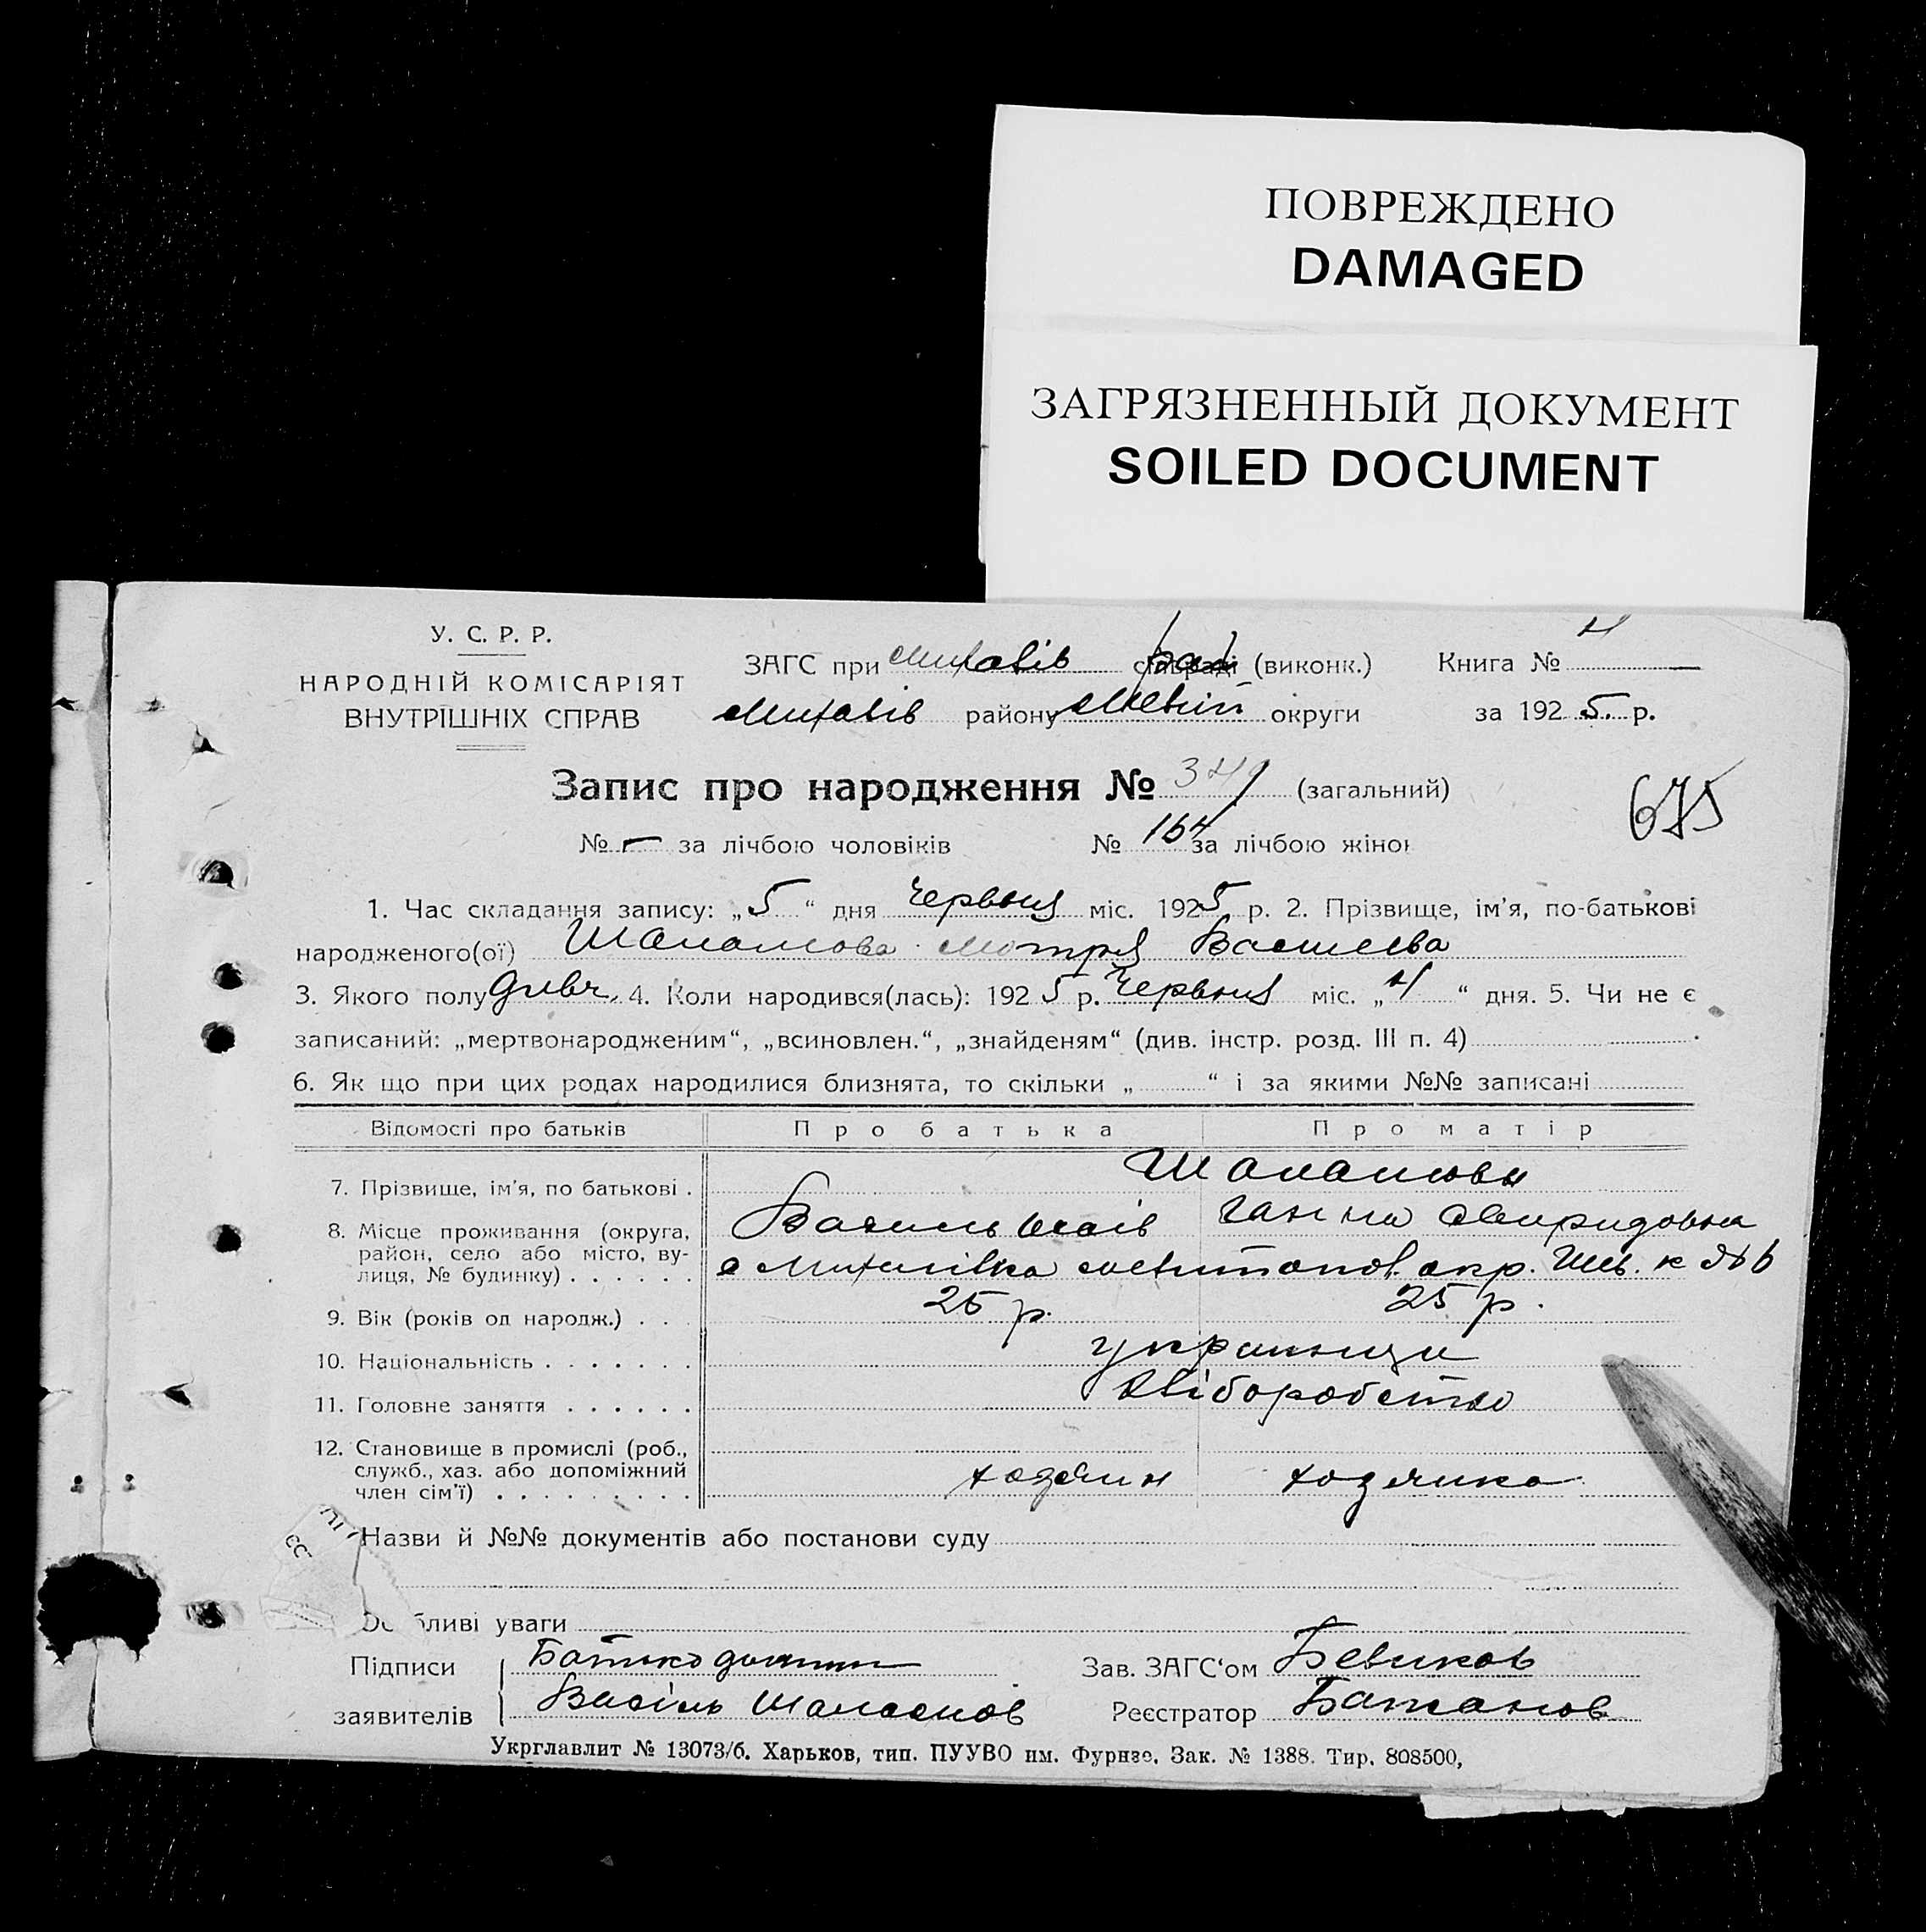 ПОВРЕЖДЕНО
DAMAGED
ЗАГРЯЗНЕННЫЙ ДОКУМЕНТ
SOILED DOCUMENT
У. С. Р. Р.
НАРОДНІЙ КОМІСАРІЯТ
ВНУТРІШНІХ СПРАВ
ЗАГС при Михалів (виконк.) Книга № 4
Михалів району округи за 1925 р.
Запис про народження № 341 (загальний)
675
№ – за лічбою чоловіків № 164 за лічбою жінок
1. Час складання запису: „5“ дня Червня міс. 1925 р. 2. Прізвище, ім'я, по-батькові
народженого(ої) Мотря
3. Якого полу дивч. 4. Коли народився(лась): 1925 р. Червня міс. „4“ дня. 5. Чи не є
записаний: „мертвонародженим“, „всиновлен.“, „знайденям“ (див. інстр. розд. III п. 4)
6. Як що при цих родах народилися близнята, то скільки „ “ і за якими №№ записані
Відомості про батьків Про батька Про матір
7. Прізвище, ім'я, по батькові .
8. Місце проживання (округа,
район, село або місто, ву-
лиця, № будинку) . . . . . .
Ганна Свиридовна
с Михалівка окр.
9. Вік (років од народж.) . . . 25 р. 25 р.
10. Національність . . . . . . . українци
11. Головне заняття . . . . . . хліборобство
12. Становище в промислі (роб.,
служб., хаз. або допоміжний
член сім'ї) . . . . . . . . . хозяин хозяика
Назви й №№ документів або постанови суду
Особливі уваги
Підписи Батько Зав. ЗАГС'ом Бевиков
заявителів Васіль Реєстратор Бажанов
Укрглавлит № 13073/б. Харьков, тип. ПУУВО им. Фурнзе. Зак. № 1388. Тир. 808500,